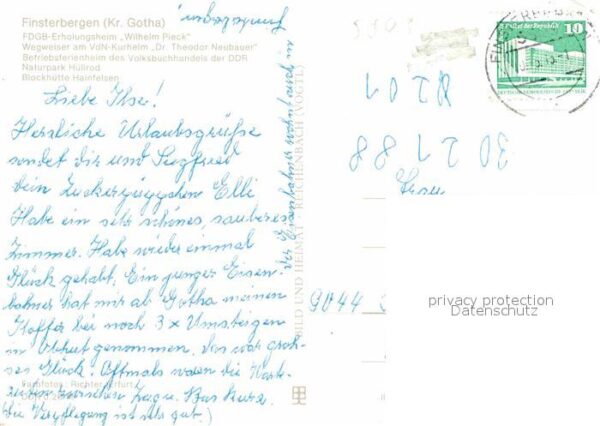 Finsterbergen (Kr. Gotha)
FDGB-Erholungsheim „Wilhelm Pieck"
Wegweiser am VdN-Kurheim „Dr. Theodor Neubauer"
Betriebsferienheim des Volksbuchhandels der DDR
Naturpark Hüllrod
Blockhütte Hainfelsen
Liebe Ilse!
Herzliche Urlaubsgrüße
sendet dir und Siegfried
dein Elli
Habe ein sehr schönes, sauberes
Zimmer. Habe wieder einmal
Glück gehabt. Ein junger Eisen-
bahner hat mir ab Gotha meinen
Koffer bei noch 3 x Umsteigen
in Obhut genommen, das war gros-
ses Glück. Oftmals waren die Warte-
zeiten zwischen
die Verpflegung ist sehr gut.)
der Eisenbahner wohnt auch in
Finsterbergen
Farbfotos: Richter, Erfurt
BILD UND HEIMAT REICHENBACH (VOGTL)
Palast der Republik
10
DEUTSCHE DEMOKRATISCHE REPUBLIK
Frau
9044
privacy protection
Datenschutz